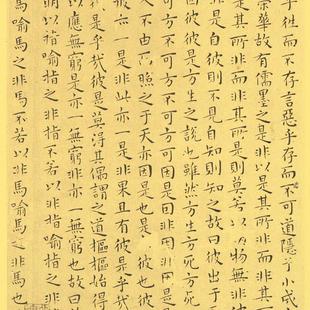 乎往而不存言惡乎存而不可道隱于小成
榮華故有儒墨之是非以是其所非而非其
是其所非而非其所是則莫若以明物無非彼
是自彼則不見自知則知之故曰彼出
因彼彼是方生之說也雖然方生方死方死
可方不可方不可方可因是因非因非
不由而照之于天亦因是也是亦彼也彼
彼亦一是非此亦一是非果且有彼是乎哉
是乎哉彼是莫得其偶謂之道樞樞始得
以應無窮是亦一無窮非亦一無窮也故曰
明以指喻指之非指不若以非指喻指之非
馬喻馬之非馬不若以非馬喻馬之非馬也